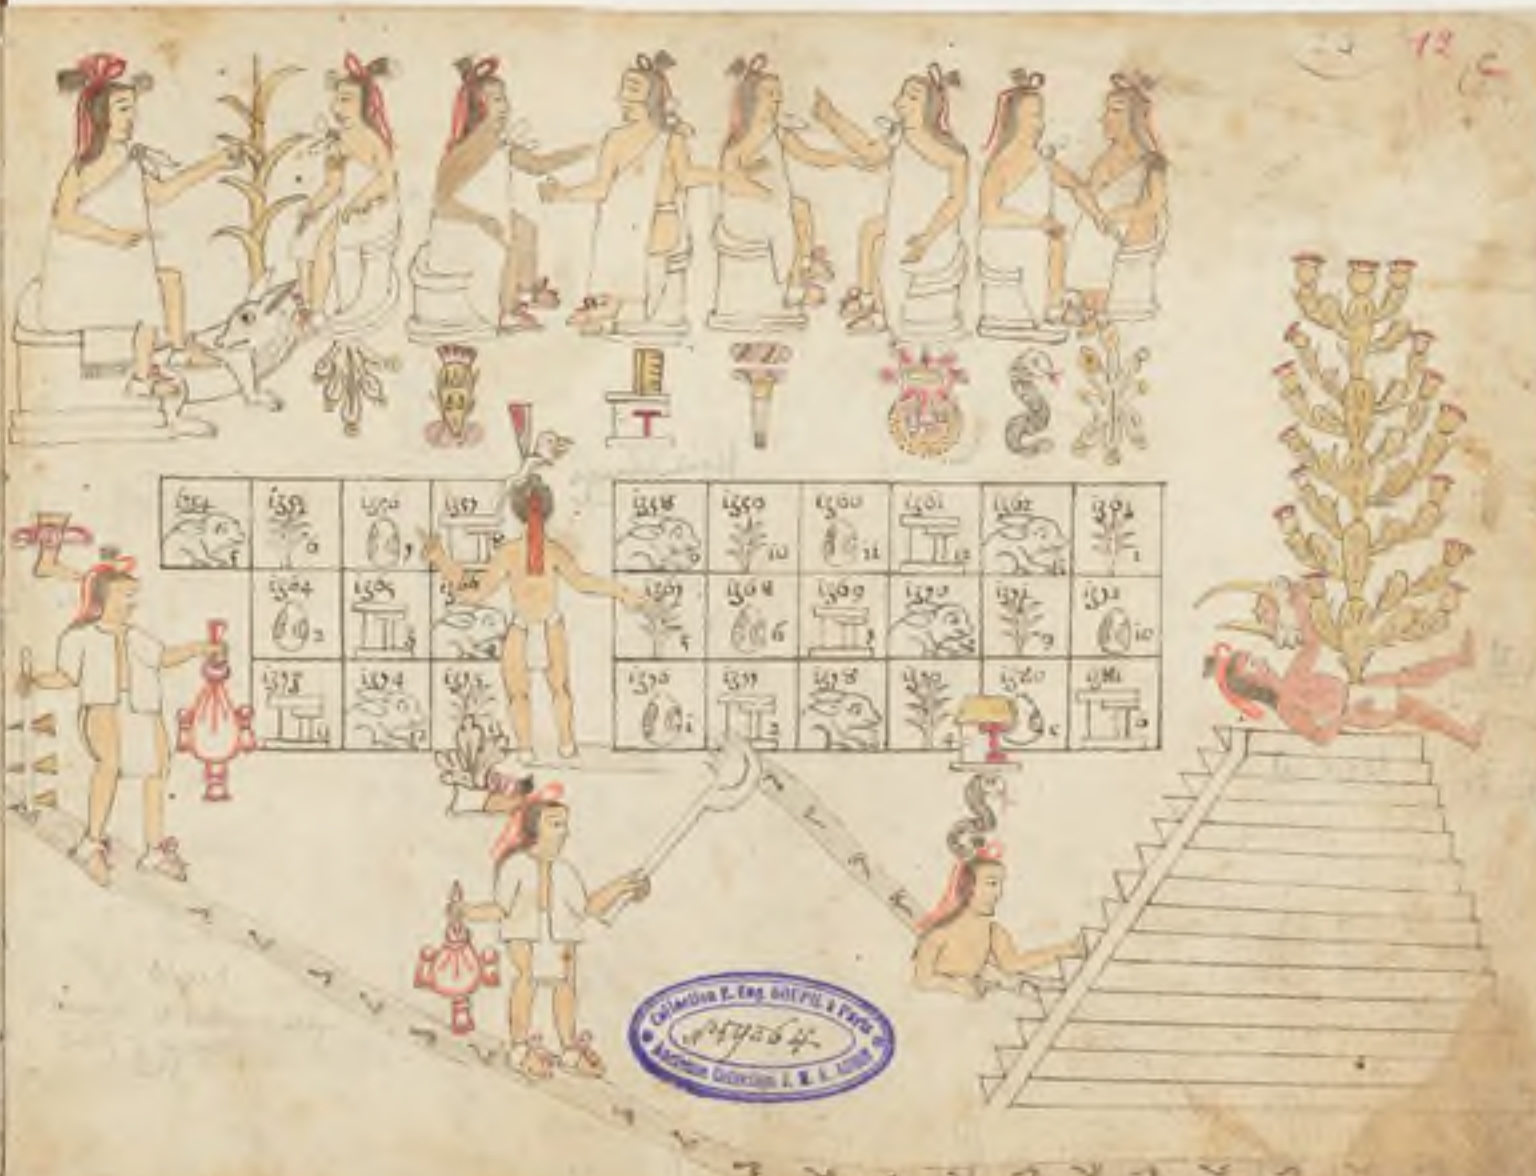 12
1354 5 1355 6 1356 7 1357 8 1358 9 1359 10 1360 11 1361 12 1362 13 1363 1
1364 2 1365 3 1366 1367 5 1368 6 1369 7 1370 8 1371 9 1372 10
1373 11 1374 12 1375 1376 1 1377 2 1378 3 1379 4 1380 5 1381 6
Collection E. Eug. GOUPIL à Paris
Ancienne Collection J. M. A. AUBIN